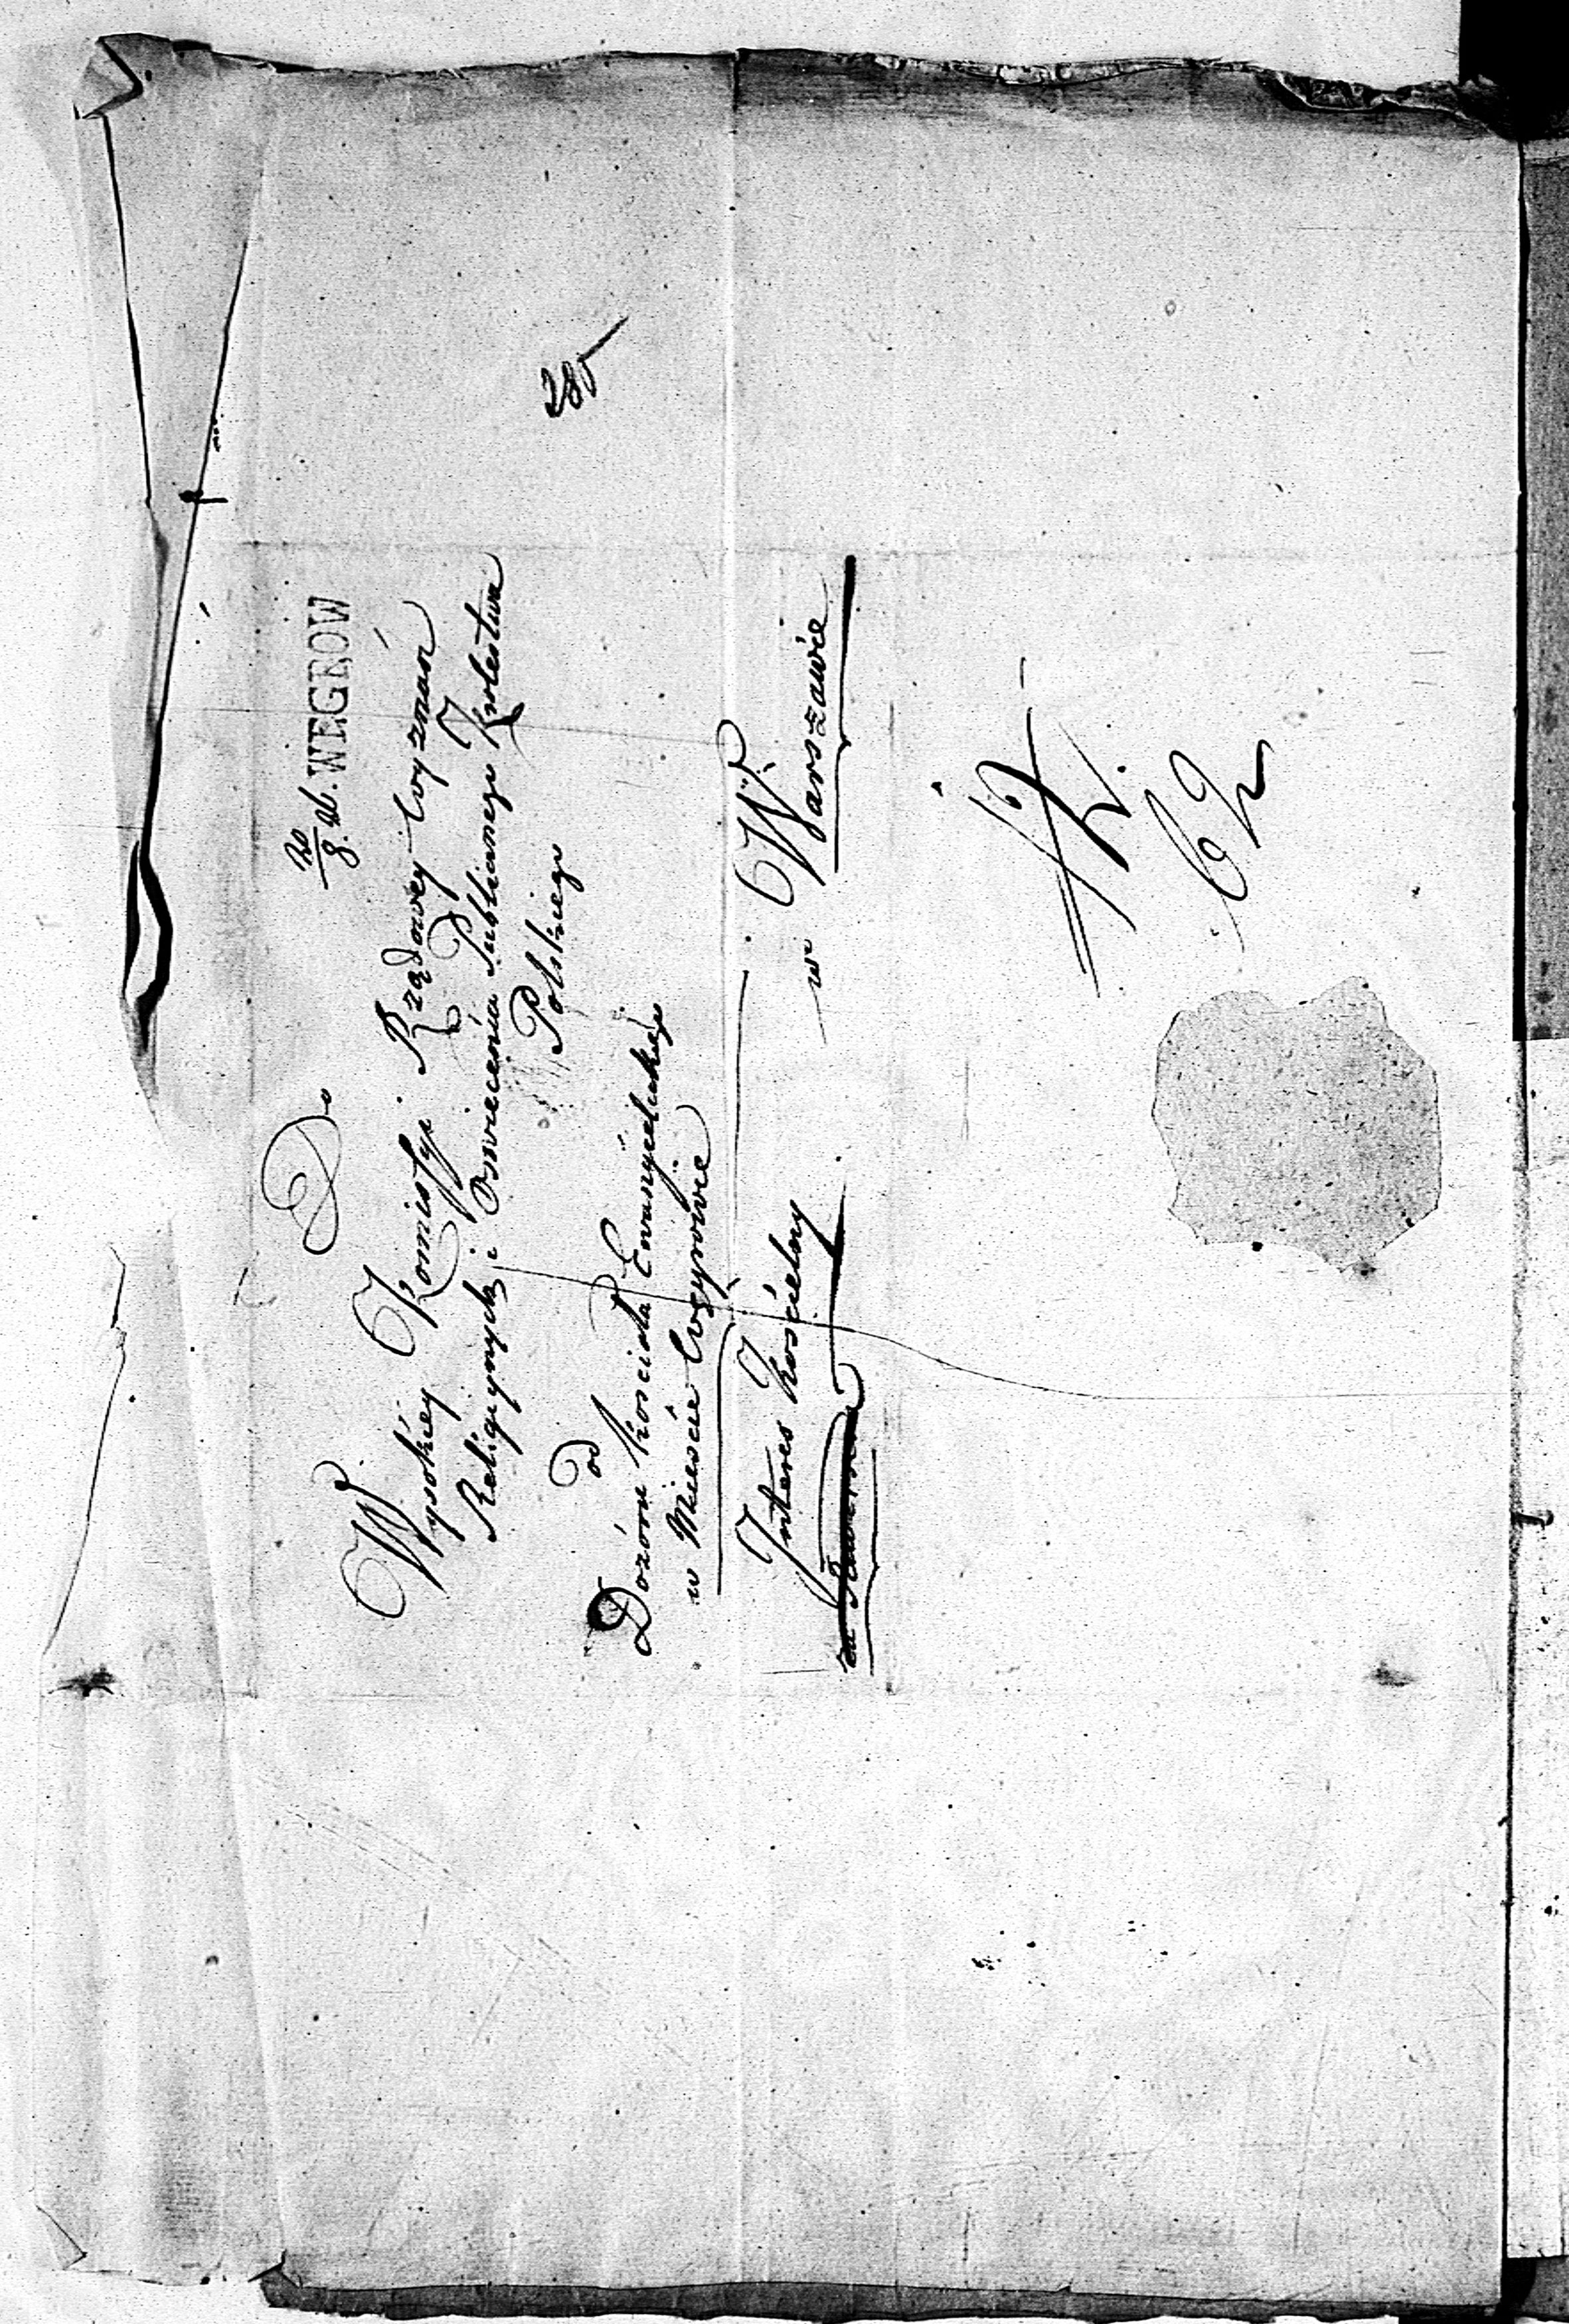 WEGRÓW
Do
Wysokiey Komissyi Rządowey Wyznań
Religiynych i Oswiecenia Publicznego Krolestwa
Polskiego
285
od
Dozoru Kościoła Ewanyelickiego
w Miescie Węgrowie
Interes Kościelny
w Warszawie